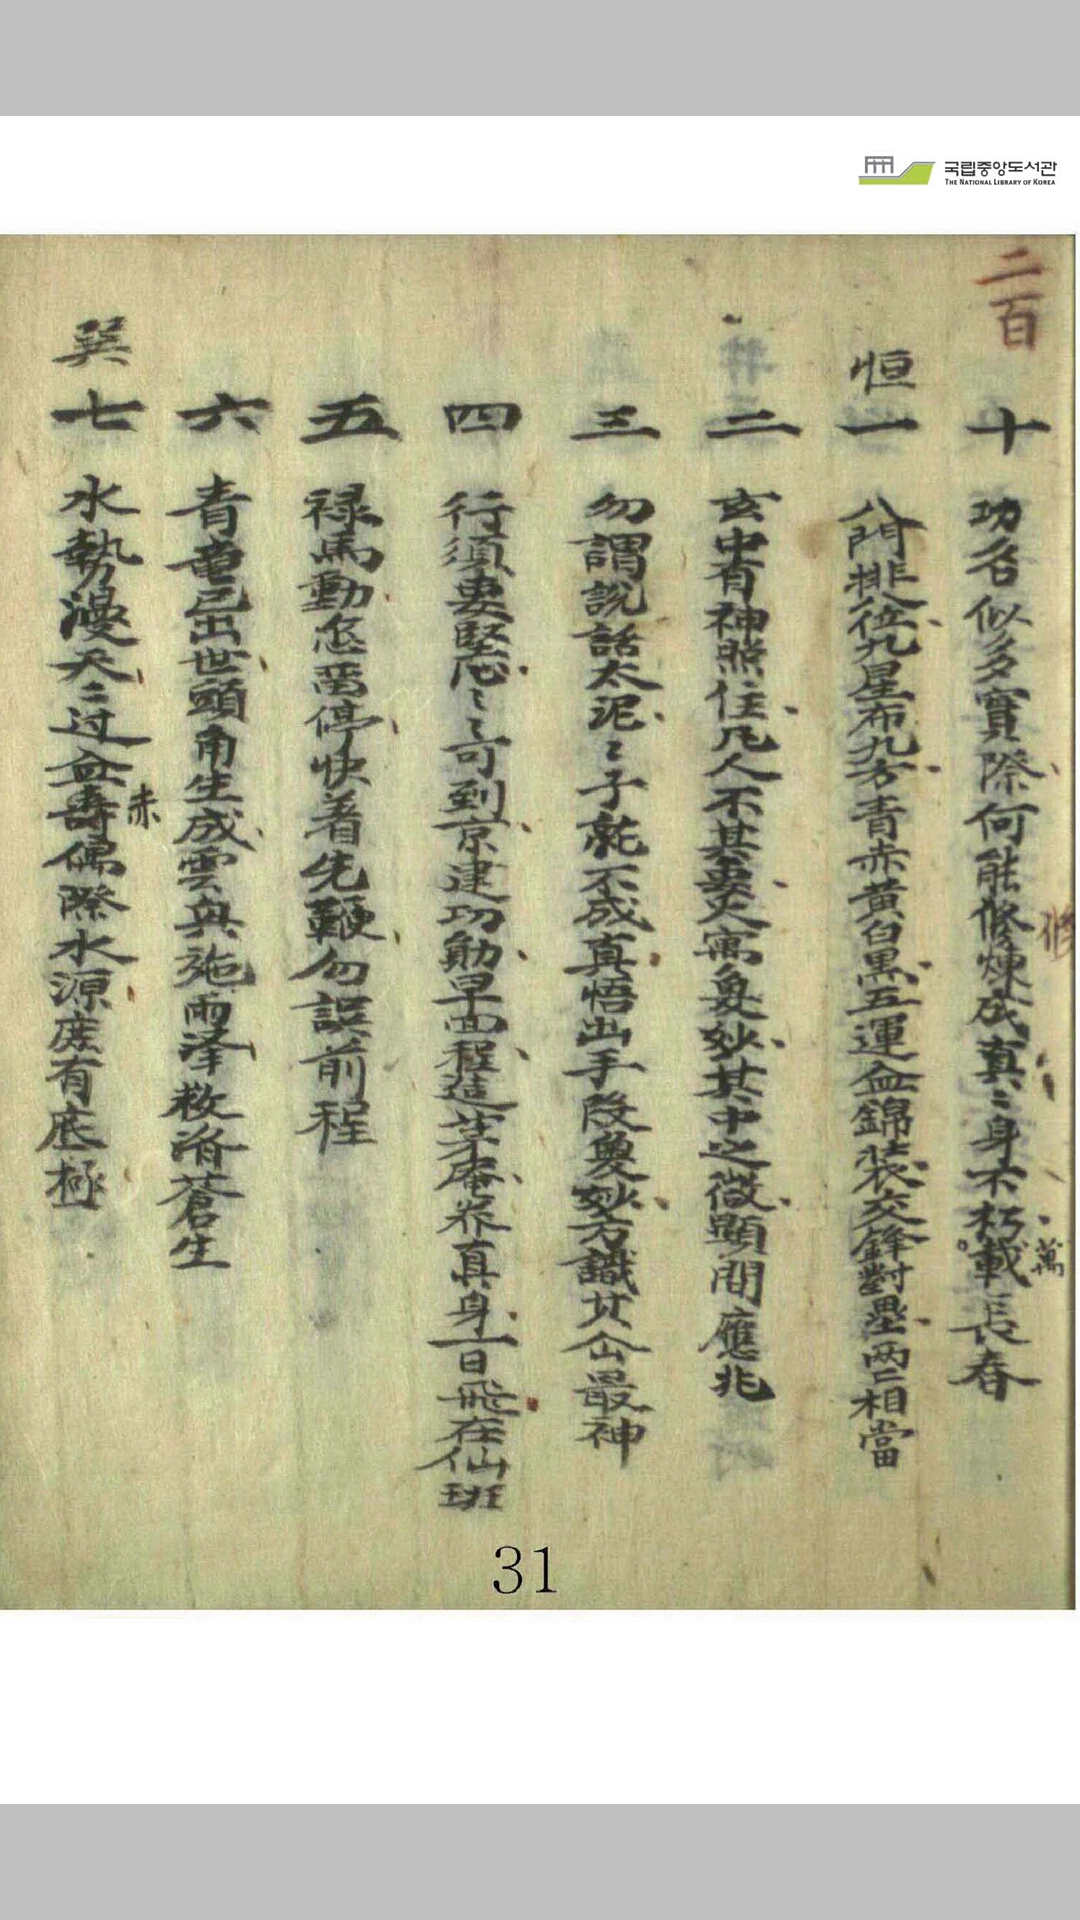 국립중앙도서관
THE NATIONAL LIBRARY OF KOREA
二百
十 功名似多實際何能修煉成真〻身不朽載長春
修
萬
恒
一 八門排位九星布九方青赤黃白黒五運血錦裝交鋒對壘两〻相當
二 玄中有神照住凡人不其要文寓妙其中之微顯間應兆
三 勿謂說話太泥〻子就不成真悟出手段妙方識其最神
四 行須要堅〻〻可到京建功勛早面程造茅庵养真身一日飛在仙班
五 禄馬動忽両停快着先鞭勿誤前程
六 青竜已出世頭角生成雲與施雨泽救济蒼生
巽
七 水勢漫天〻过血壽際水源庶有底極
赤
31